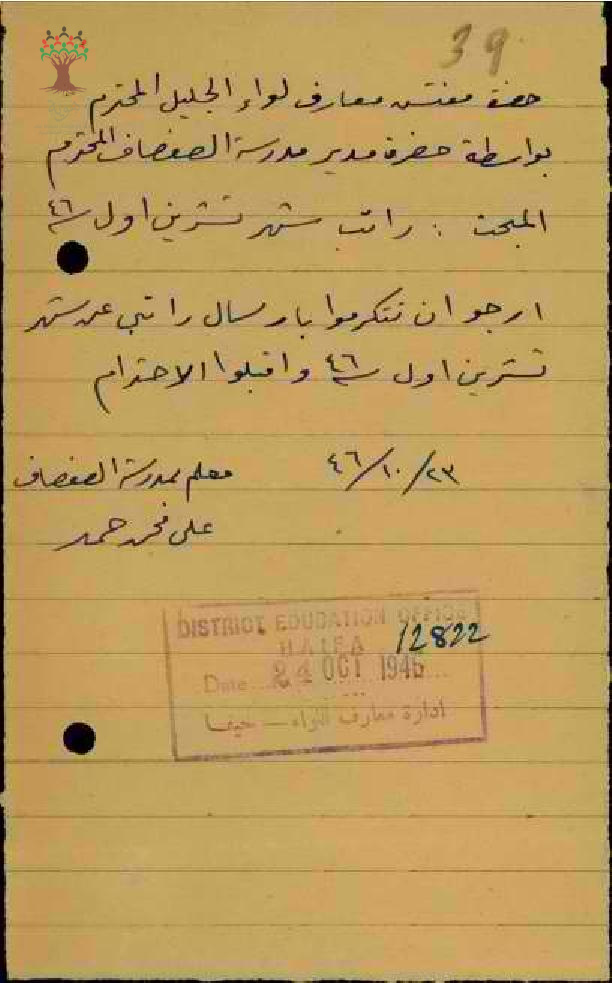 39
حضرة مفتش معارف لواء الجليل المحترم
بواسطة حضرة مدير مدرسة الصفصاف المحترم
المبحث : راتب شهر تشرين اول سنة ٤٦
ارجو ان تتكرموا بارسال راتبي عن شهر
تشرين اول سنة ٤٦ واقبلوا الاحترام
٢٣/١٠/٤٦ معلم بمدرسة الصفصاف
علي محمد حمد
DISTRICT EDUCATION OFFICE
HAIFA 12822
Date 24 OCT 1946
ادارة معارف اللواء — حيفا